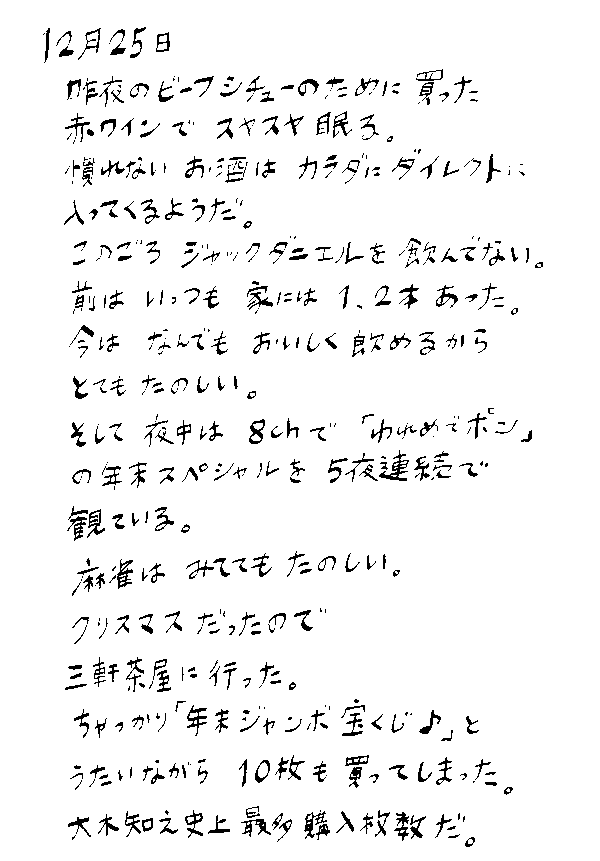 12月25日
昨夜のビーフシチューのために買った
赤ワインでスヤスヤ眠る。
慣れないお酒はカラダにダイレクトに
入ってくるようだ。
このごろジャックダニエルを飲んでない。
前はいつも家には1、2本あった。
今はなんでもおいしく飲めるから
とてもたのしい。
そして夜中は8chで「われめでポン」
の年末スペシャルを5夜連続で
観ている。
麻雀はみててもたのしい。
クリスマスだったので
三軒茶屋に行った。
ちゃっかり「年末ジャンボ宝くじ♪」と
うたいながら10枚も買ってしまった。
大木知之史上最多購入枚数だ。